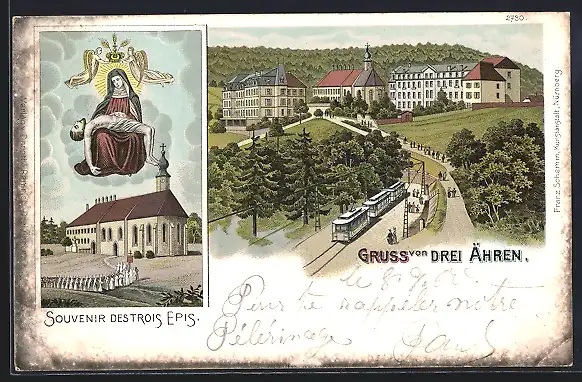 2730.
GRUSS VON DREI ÄHREN.
Franz Schemm, Kunstanstalt, Nürnberg
SOUVENIR DES TROIS EPIS.
le 8. 9.
Pour te rappeler notre
Pélérinage